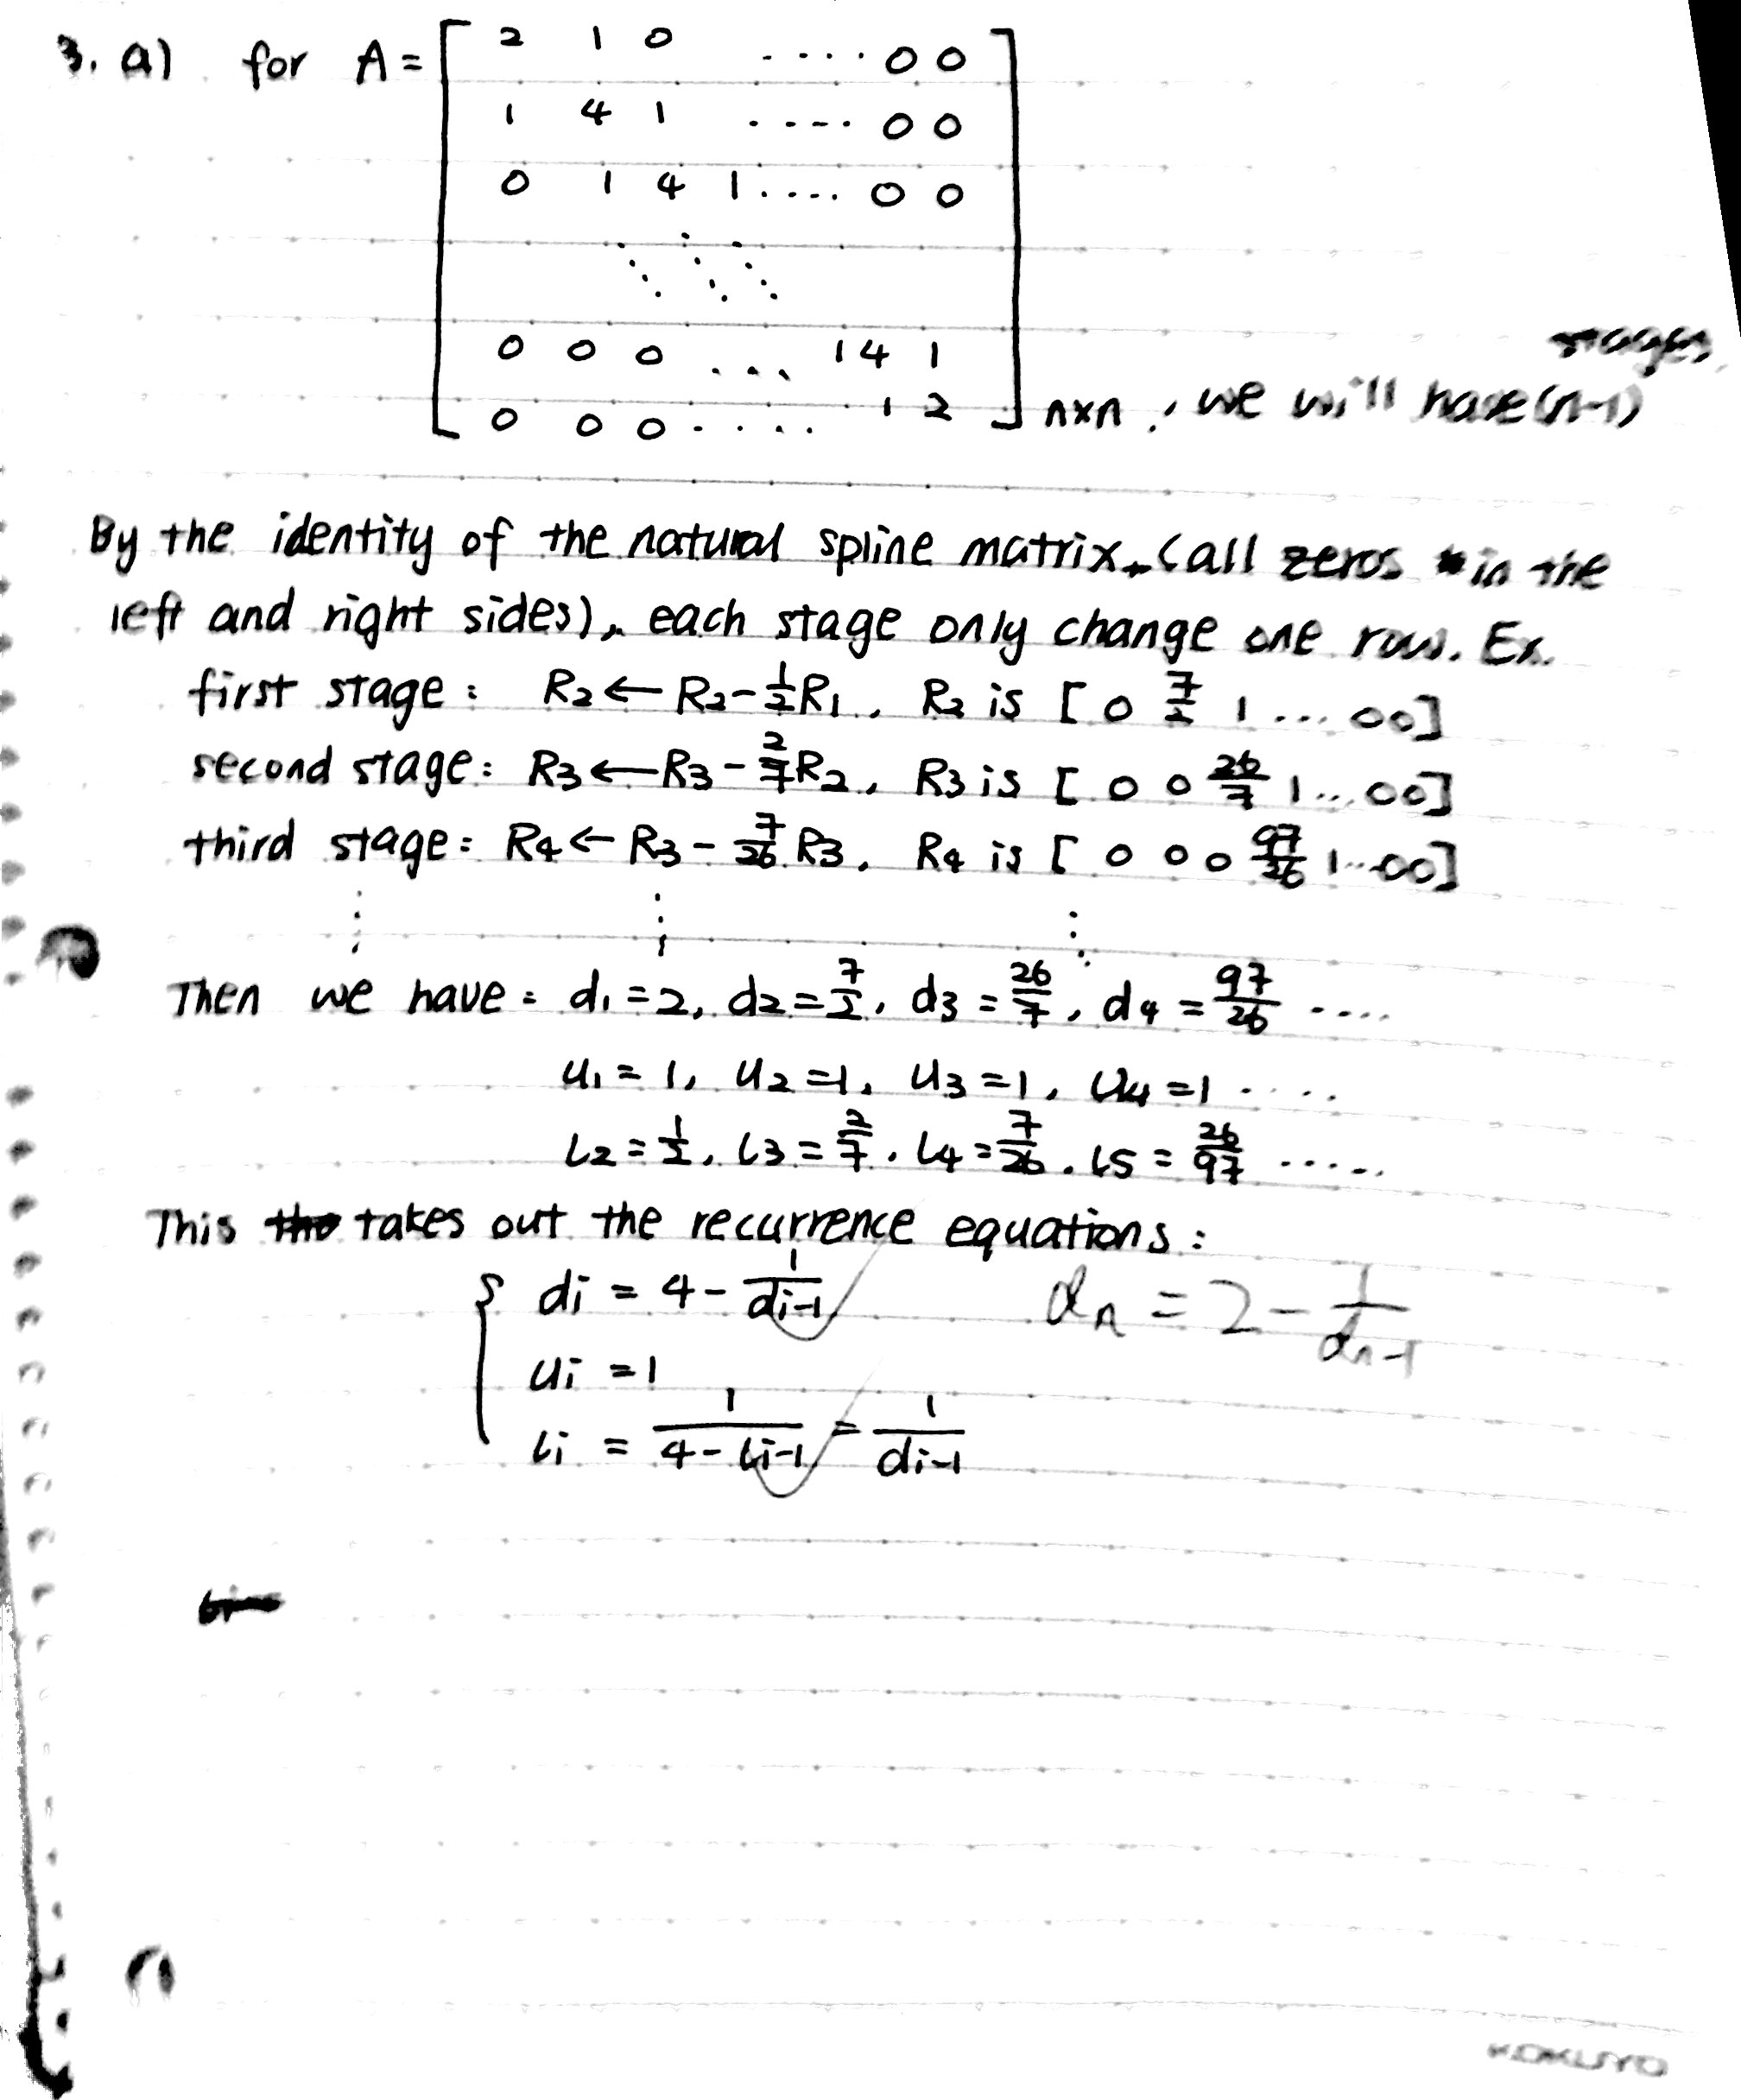 3. a) for A = [ 2 1 0 ..... 0 0
1 4 1 ..... 0 0
0 1 4 1 .... 0 0
0 0 0 ... 1 4 1
stages,
0 0 0 ..... 1 2 ] n×n, we will have (n-1)
By the identity of the natural spline matrix, (all zeros in the
left and right sides), each stage only change one row. Ex.
first stage: R2 ← R2 - 1/2 R1, R2 is [0 7/2 1 ... 0 0]
second stage: R3 ← R3 - 2/7 R2, R3 is [0 0 26/7 1 ... 0 0]
third stage: R4 ← R3 - 7/26 R3, R4 is [0 0 0 97/26 1 ... 0 0]
Then we have: d1 = 2, d2 = 7/2, d3 = 26/7, d4 = 97/26 ....
u1 = 1, u2 = 1, u3 = 1, u4 = 1 ....
l2 = 1/2, l3 = 2/7, l4 = 7/26, l5 = 26/97 .....
This takes out the recurrence equations:
{ di = 4 - 1/di-1 dn = 2 - 1/dn-1
ui = 1
li = 1/(4 - li-1) = 1/di-1
KOKUYO